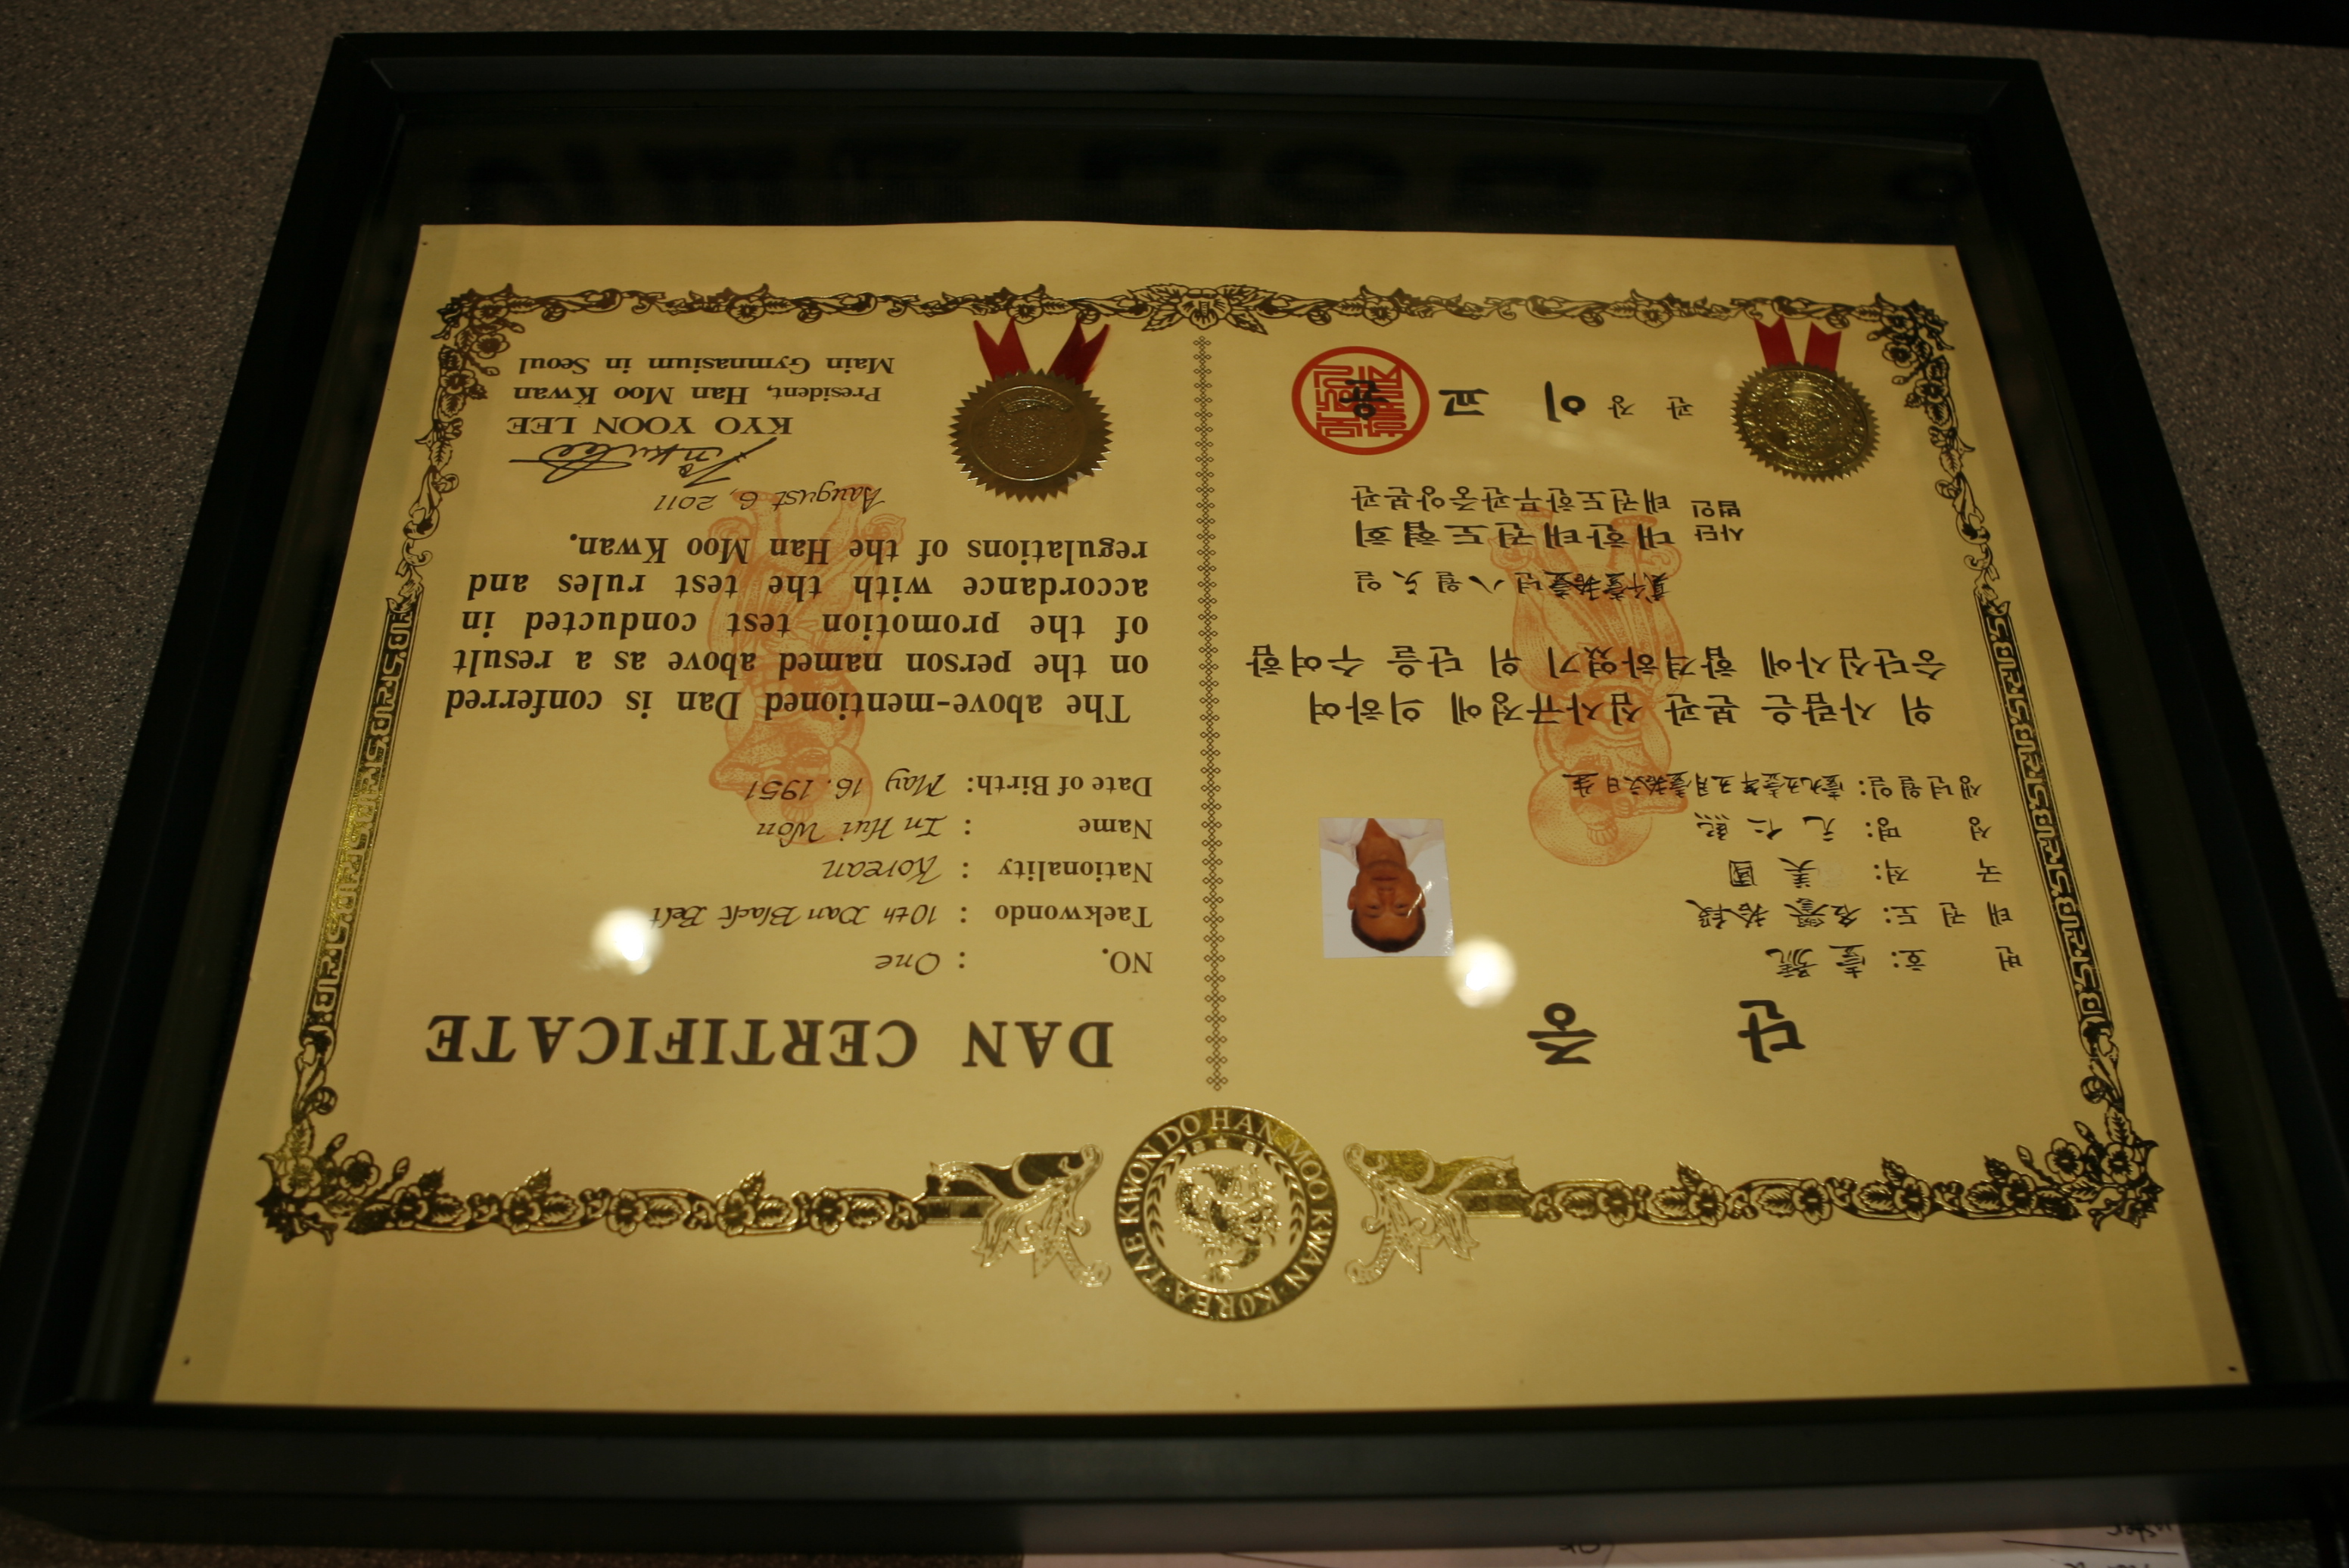 TAE KWON DO HAN MOO KWAN · KOREA ·
단 증
번 호: 壹 號
태 권 도: 名譽 拾段
국 적: 美 國
성 명: 元 仁 熙
생년월일: 壹九五壹年五月壹拾六日生
위 사람은 본관 심사규정에 의하여
승단심사에 합격하였기 위 단을 수여함
貳千壹拾壹년 八월 六일
사단법인 대한태권도협회
태권도한무관중앙본관
관 장 이 교 윤
DAN CERTIFICATE
NO. : One
Taekwondo : 10th Dan Black Belt
Nationality : Korean
Name : In Hui Won
Date of Birth: May 16. 1951
The above-mentioned Dan is conferred
on the person named above as a result
of the promotion test conducted in
accordance with the test rules and
regulations of the Han Moo Kwan.
August 6, 2011
KYO YOON LEE
President, Han Moo Kwan
Main Gymnasium in Seoul